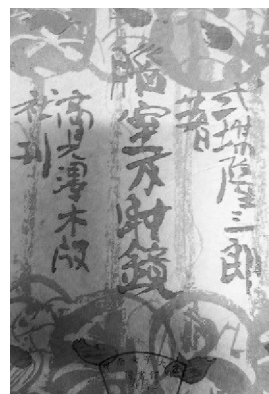 式場隆三郎
著
腦室反射鏡
高見澤木版
社刊